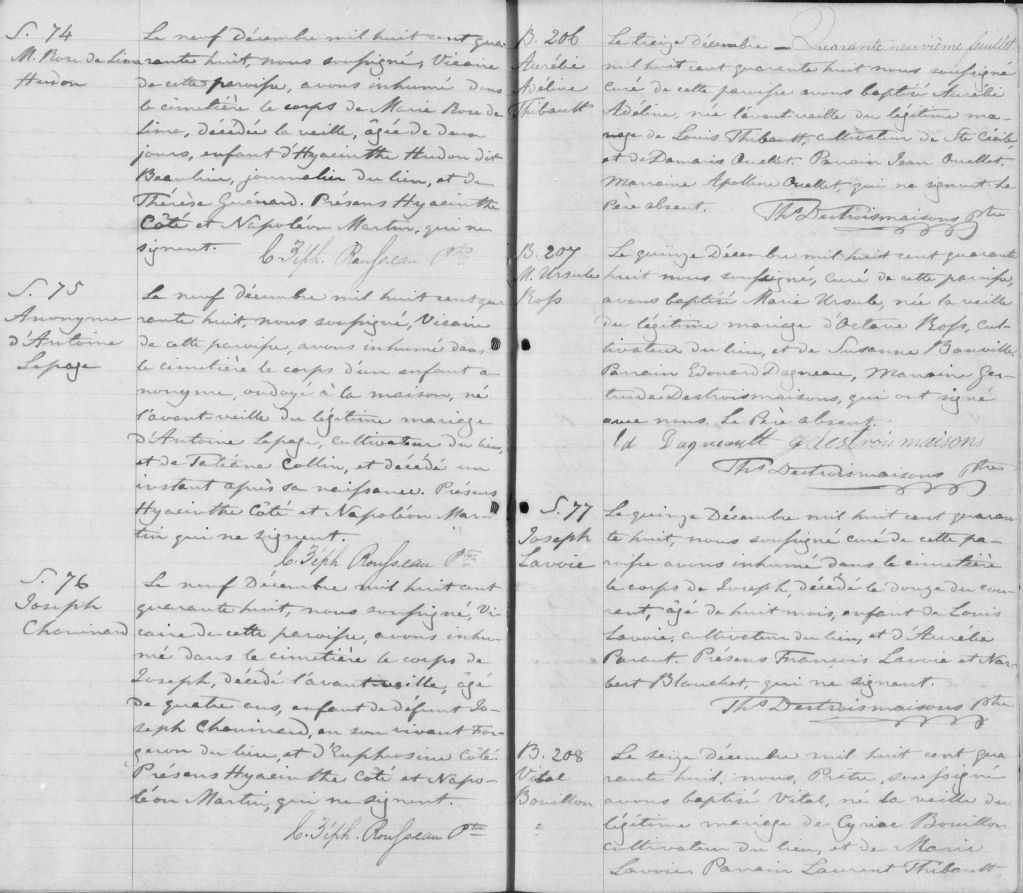 S. 74
M. Rose de Lima
Hudon
Le neuf Décembre mil huit cent qua-
rante huit, nous soussigné, Vicaire
de cette paroisse, avons inhumé dans
le cimetière le corps de Marie Rose de
Lima, décédée la veille, âgée de deux
jours, enfant d'Hyacinthe Hudon dit
Beaulieu, journalier du lieu, et de
Thérèse Guénard. Présens Hyacinthe
Côté et Napoléon Martin, qui ne
signent.
C. Ziph. Rousseau Ptre
S. 75
Anonyme
d'Antoine
Lepage
Le neuf décembre mil huit cent qua
rante huit, nous soussigné, Vicaire
de cette paroisse, avons inhumé dans
le cimetière le corps d'un enfant a
nonyme, ondoyé à la maison, né
l'avant-veille du légitime mariage
d'Antoine Lepage, cultivateur du lieu,
et de Tatiana Collin, et décédé un
instant après sa naissance. Présens
Hyacinthe Côté et Napoléon Mar-
tin qui ne signent.
C. Ziph. Rousseau Ptre
S. 76
Joseph
Chouinard
Le neuf Décembre mil huit cent
quarante huit, nous soussigné, Vi
caire de cette paroisse, avons inhu-
mé dans le cimetière le corps de
Joseph, décédé l'avant-veille, âgé
de quatre ans, enfant de défunt Jo-
seph Chouinard, en son vivant For-
geron du lieu, et d'Euphrosine Côté.
Présens Hyacinthe Côté et Napo-
léon Martin, qui ne signent.
C. Ziph. Rousseau Ptre
B. 206
Aurélie
Adéline
Thibault
Quarante neuvième feuillet
Le treize Décembre —
mil huit cent quarante huit nous soussigné
curé de cette paroisse avons baptisé Aurélie
Adéline, née l'avant-veille du légitime ma-
riage de Louis Thibault, cultivateur de Ste Cécile,
et de Damaris Ouellet. Parrain Jean Ouellet,
Marraine Apolline Ouellet qui ne signent. Le
Père absent.
Ths Destroismaisons Ptre
B. 207
M. Ursule
Ross
Le quinze Décembre mil huit cent quarante
huit nous soussigné, curé de cette paroisse,
avons baptisé Marie Ursule, née la veille
du légitime mariage d'Octave Ross, cul-
tivateur du lieu, et de Susanne Banville.
Parrain Edouard Dagneau, Marraine Ger-
trude Destroismaisons, qui ont signé
avec nous. Le Père absent.
Ed Dagneault g destrois maisons
Ths Destroismaisons Ptre
S. 77
Joseph
Lavoie
Le quinze Décembre mil huit cent quaran
te huit, nous soussigné curé de cette pa-
roisse avons inhumé dans le cimetière
le corps de Joseph, décédé le douze du cou-
rant, âgé de huit mois, enfant de Louis
Lavoie, cultivateur du lieu, et d'Aurélie
Parent. Présens François Lavoie et Nar-
bert Blanchet, qui ne signent.
Ths Destroismaisons Ptre
B. 208
Vital
Bouillon
Le seize Décembre mil huit cent qua
rante huit, nous, Prêtre, soussigné
avons baptisé Vital, né la veille du
légitime mariage de Cyriac Bouillon
cultivateur du lieu, et de Marie
Lavoie. Parrain Laurent Thibault